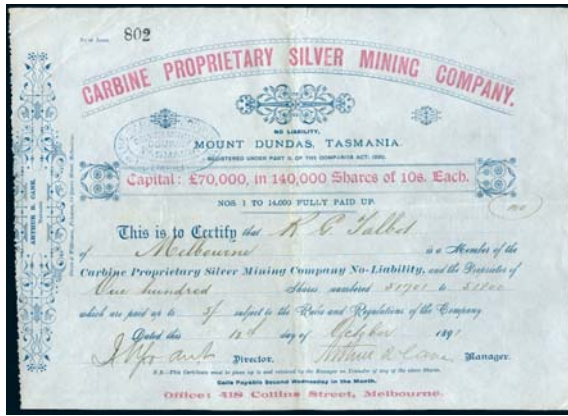 802
CARBINE PROPRIETARY SILVER MINING COMPANY.
NO LIABILITY,
MOUNT DUNDAS, TASMANIA.
REGISTERED UNDER PART II. OF THE COMPANIES ACT, 1890.
Capital: £70,000, in 140,000 Shares of 10s. Each.
NOS. 1 TO 14,000 FULLY PAID UP.
This is to Certify that R G Talbot
of Melbourne is a Member of the
Carbine Proprietary Silver Mining Company No-Liability, and the Proprietor of
One hundred Shares numbered 51701 to 51800
which are paid up to 3/ subject to the Rules and Regulations of the Company
Dated this day of October 1891
Director. Manager.
N.B.—This Certificate must be given up to and retained by the Manager on Transfer of any of the above Shares.
Calls Payable Second Wednesday in the Month.
Office: 418 Collins Street, Melbourne.
ARTHUR R. CANE,